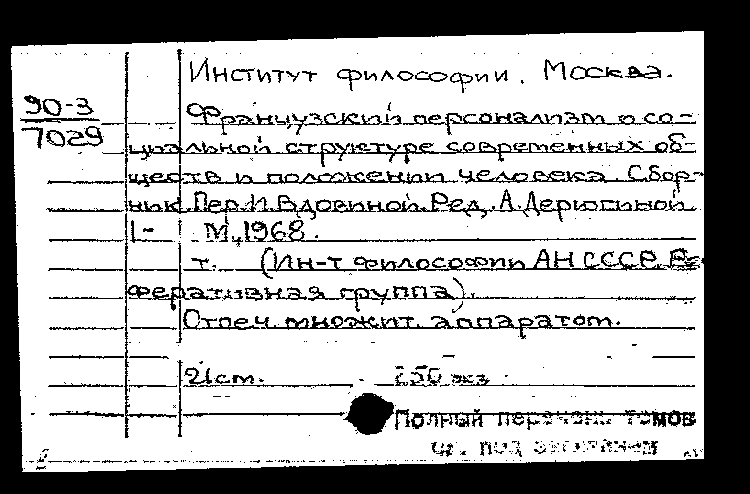 Институт философии. Москва.
90-3
7029
Французский персонализм о со-
циальной структуре современных об-
ществ и положении человека. Сбор-
ник. Пер. И. Вдовиной. Ред. А. Дерюгиной.
1- М., 1968.
т. (Ин-т философии АН СССР. Ре-
феративная группа).
Отпеч. множит. аппаратом.
21 ст. 250 экз.
Полный перечень томов
см. под заглавием